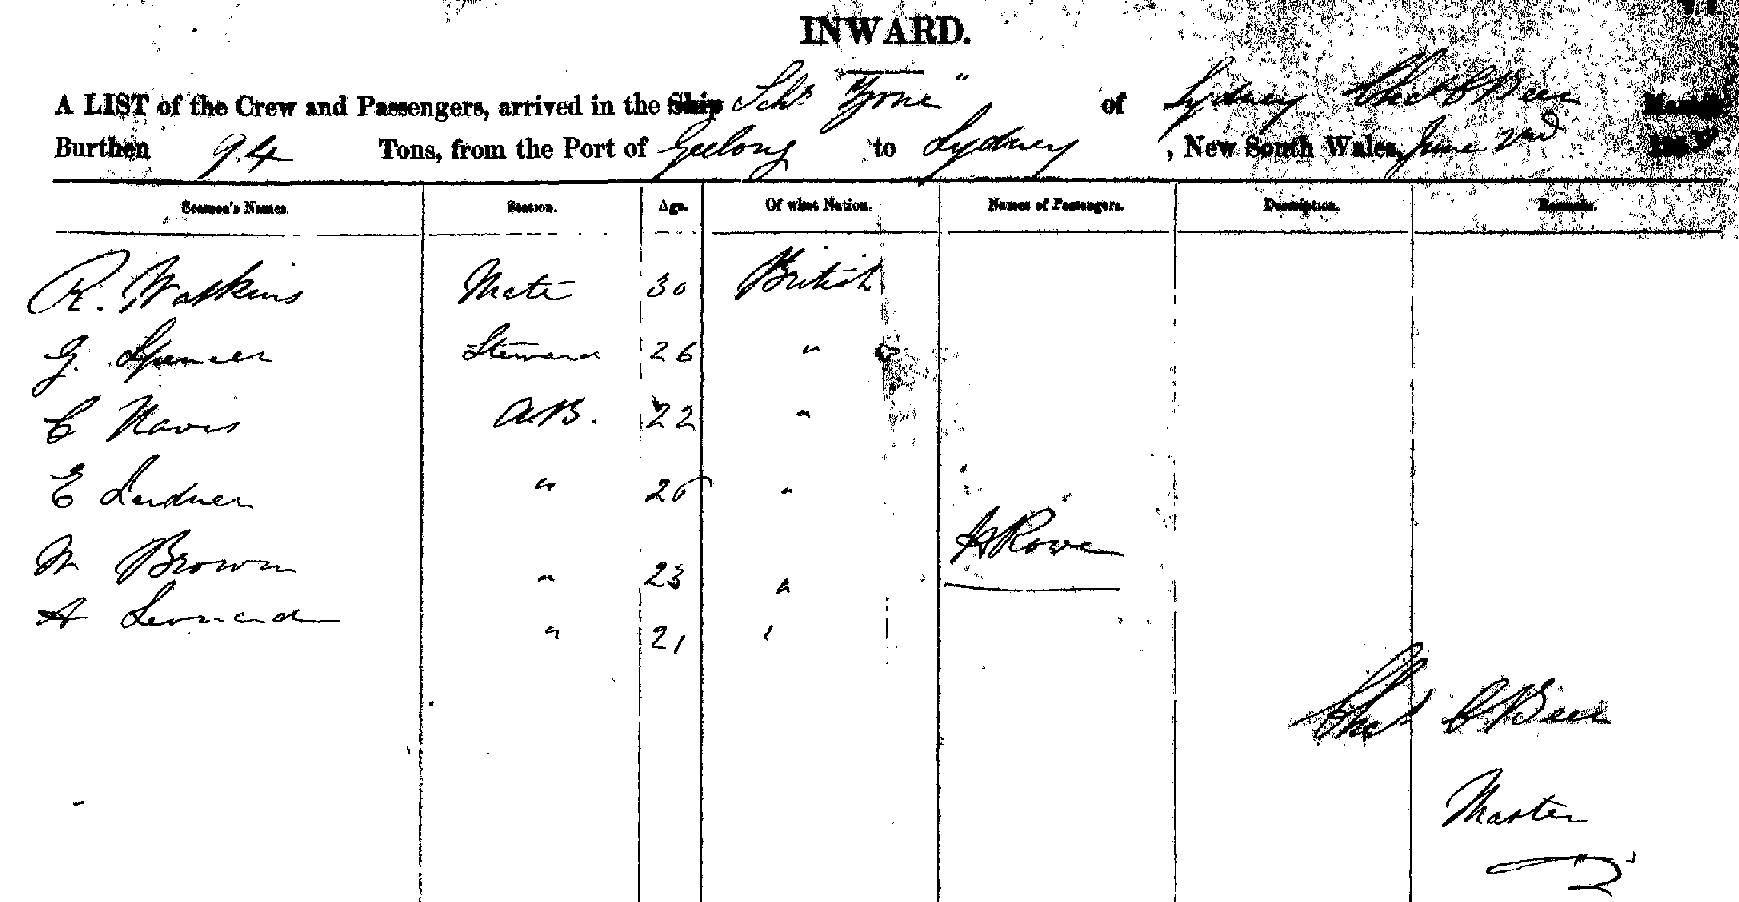 INWARD.
A LIST of the Crew and Passengers, arrived in the Ship Schr "Tyrone" of Sydney Chas C Beer Master
Burthen 94 Tons, from the Port of Geelong to Sydney, New South Wales, June 2nd
Seamen's Names. Station. Age. Of what Nation. Names of Passengers. Description. Remarks.
R. Watkins Mate 30 British
G. Spencer Steward 26 "
C Navis A.B. 22 "
E " 25 "
W Brown " 23 "
H Rowe
A Leonard " 21 "
Chas C Beer
Master